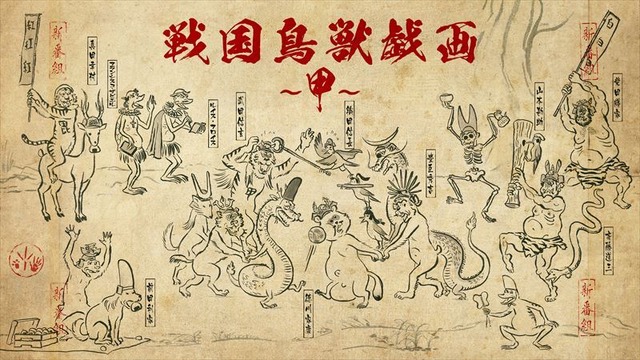 戦国鳥獣戯画
〜甲〜
新番組
新番組
新番組
新番組
真田幸村
フランシスコ・ザビエル
ルイス・フロイス
武田信玄
織田信長
豊臣秀吉
山本勘助
柴田勝家
斎藤道三
前田利家
徳川家康